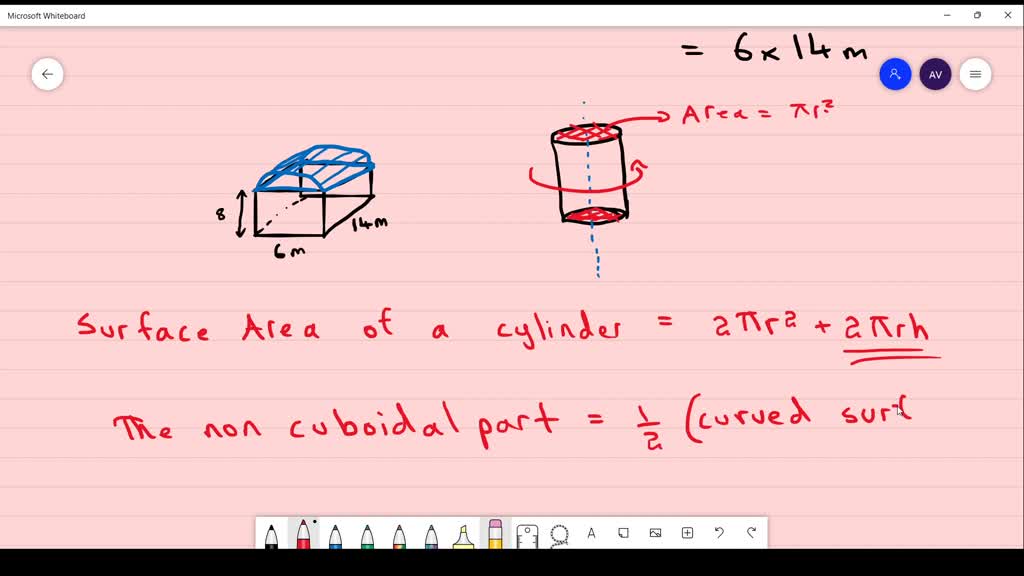 Microsoft Whiteboard
= 6 x 14 m
AV
Area = πr²
8
14m
6m
Surface Area of a cylinder = 2πr² + 2πrh
The non cuboidal part = 1/2 (curved surf
A